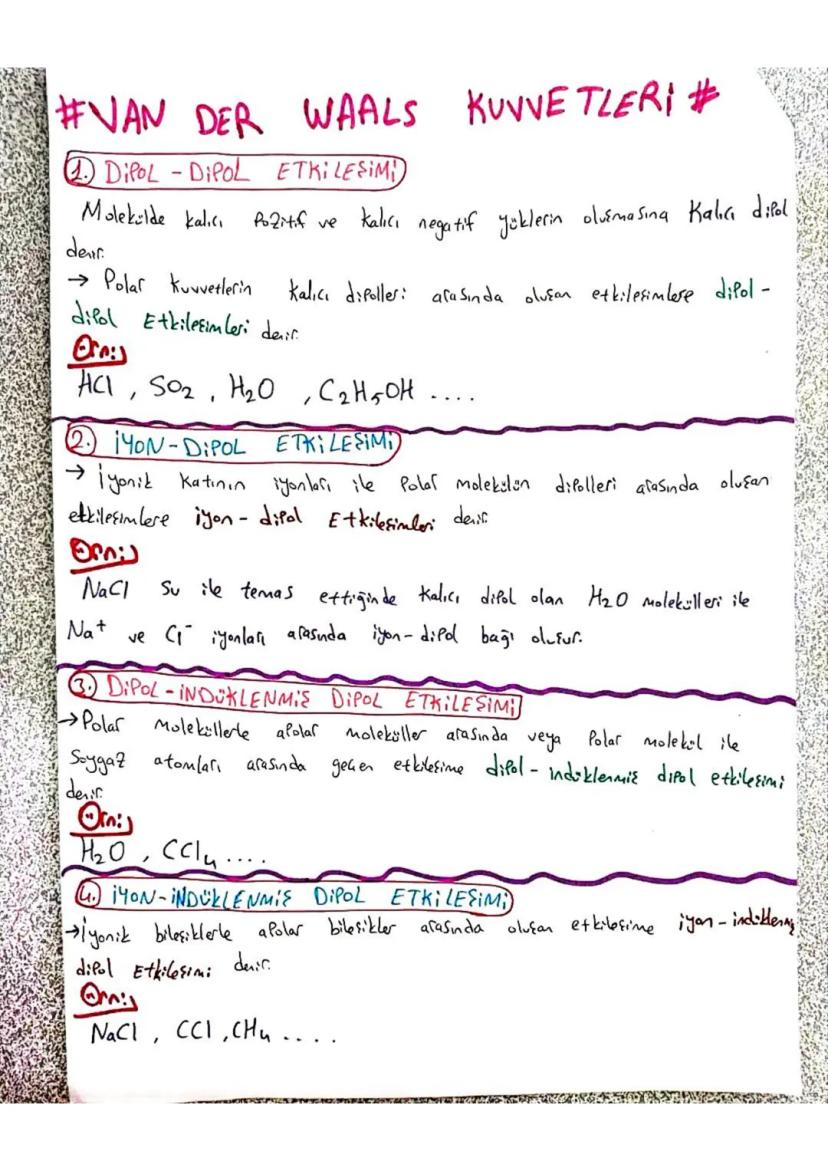 #VAN DER WAALS KUVVETLERİ#
1. DİPOL - DİPOL ETKİLEŞİMİ
Molekülde kalıcı pozitif ve kalıcı negatif yüklerin oluşmasına Kalıcı dipol
denir.
→ Polar kuvvetlerin kalıcı dipolleri arasında oluşan etkileşimlere dipol-
dipol Etkileşimleri denir.
Örn:;
HCl , SO2 , H2O , C2H5OH ....
2. İYON-DİPOL ETKİLEŞİMİ
→ İyonik katının iyonları ile Polar molekülün dipolleri arasında oluşan
etkileşimlere iyon-dipol Etkileşimleri denir.
Örn:;
NaCl su ile temas ettiğinde kalıcı dipol olan H2O molekülleri ile
Na+ ve Cl- iyonları arasında iyon-dipol bağı oluşur.
3. DİPOL-İNDÜKLENMİŞ DİPOL ETKİLEŞİMİ
→Polar moleküllerle apolar moleküller arasında veya Polar molekül ile
Soygaz atomları arasında geçen etkileşime dipol-indüklenmiş dipol etkileşimi
denir.
Örn:;
H2O , CCl4 ....
4. İYON-İNDÜKLENMİŞ DİPOL ETKİLEŞİMİ
→İyonik bileşiklerle apolar bileşikler arasında oluşan etkileşime iyon-indüklenmiş
dipol Etkileşimi denir.
Örn:;
NaCl , CCl ,CH4 ....